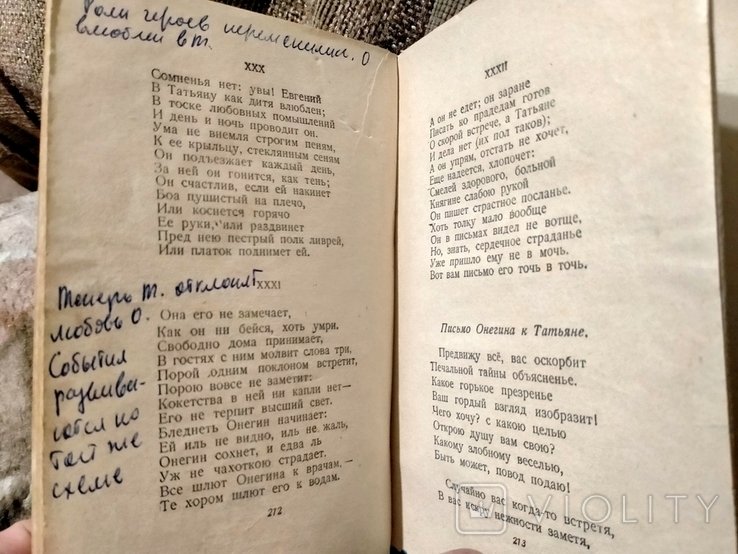 Роли героев переменились. О
влюблен в Т.
XXX
Сомненья нет: увы! Евгений
В Татьяну как дитя влюблен;
В тоске любовных помышлений
И день и ночь проводит он.
Ума не внемля строгим пеням,
К ее крыльцу, стеклянным сеням
Он подъезжает каждый день,
За ней он гонится, как тень;
Он счастлив, если ей накинет
Боа пушистый на плечо,
Или коснется горячо
Ее руки, или раздвинет
Пред нею пестрый полк ливрей,
Или платок поднимет ей.
Теперь Т. отклонит
любовь О.
События
развива-
ются по
той же
схеме
XXXI
Она его не замечает,
Как он ни бейся, хоть умри.
Свободно дома принимает,
В гостях с ним молвит слова три,
Порой одним поклоном встретит,
Порою вовсе не заметит:
Кокетства в ней ни капли нет—
Его не терпит высший свет.
Бледнеть Онегин начинает:
Ей иль не видно, иль не жаль,
Онегин сохнет, и едва ль
Уж не чахоткою страдает.
Все шлют Онегина к врачам,—
Те хором шлют его к водам.
212
XXXII
А он не едет; он заране
Писать ко прадедам готов
О скорой встрече, а Татьяне
И дела нет (их пол таков);
А он упрям, отстать не хочет,
Еще надеется, хлопочет;
Смелей здорового, больной
Княгине слабою рукой
Он пишет страстное посланье.
Хоть толку мало вообще
Он в письмах видел не вотще,
Но, знать, сердечное страданье
Уже пришло ему не в мочь.
Вот вам письмо его точь в точь.
Письмо Онегина к Татьяне.
Предвижу всё, вас оскорбит
Печальной тайны объясненье.
Какое горькое презренье
Ваш гордый взгляд изобразит!
Чего хочу? с какою целью
Открою душу вам свою?
Какому злобному веселью,
Быть может, повод подаю!
Случайно вас когда-то встретя,
В вас искру нежности заметя,
213
VIOLITY